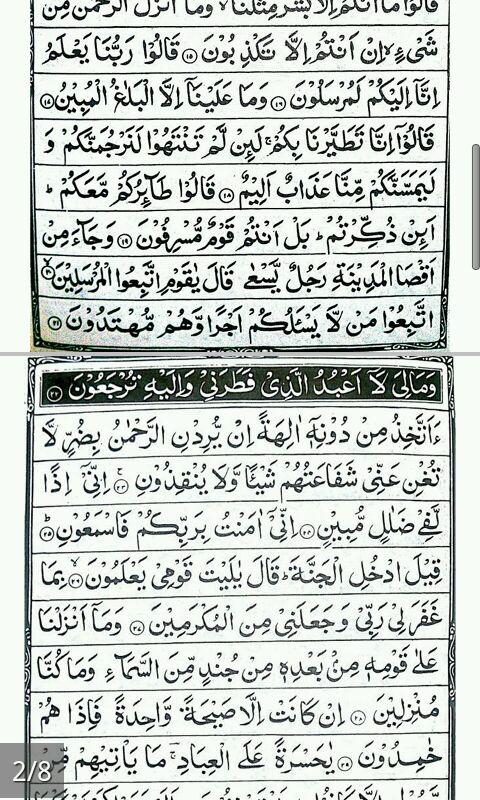 قَالُوْا مَآ اَنْتُمْ اِلَّا بَشَرٌ مِّثْلُنَا ۙ وَمَآ اَنْزَلَ الرَّحْمٰنُ مِنْ
شَىْءٍ ۙ اِنْ اَنْتُمْ اِلَّا تَكْذِبُوْنَ ﴿۱۵﴾ قَالُوْا رَبُّنَا يَعْلَمُ
اِنَّآ اِلَيْكُمْ لَمُرْسَلُوْنَ ﴿۱۶﴾ وَمَا عَلَيْنَآ اِلَّا الْبَلٰغُ الْمُبِيْنُ ﴿۱۷﴾
قَالُوْٓا اِنَّا تَطَيَّرْنَا بِكُمْ ۚ لَئِنْ لَّمْ تَنْتَهُوْا لَنَرْجُمَنَّكُمْ وَ
لَيَمَسَّنَّكُمْ مِّنَّا عَذَابٌ اَلِيْمٌ ﴿۱۸﴾ قَالُوْا طَآئِرُكُمْ مَّعَكُمْ ؕ
اَئِنْ ذُكِّرْتُمْ ؕ بَلْ اَنْتُمْ قَوْمٌ مُّسْرِفُوْنَ ﴿۱۹﴾ وَجَآءَ مِنْ
اَقْصَا الْمَدِيْنَةِ رَجُلٌ يَّسْعٰى قَالَ يٰقَوْمِ اتَّبِعُوا الْمُرْسَلِيْنَ ﴿۲۰﴾
اتَّبِعُوْا مَنْ لَّا يَسْئَلُكُمْ اَجْرًا وَّهُمْ مُّهْتَدُوْنَ ﴿۲۱﴾
وَمَا لِىَ لَآ اَعْبُدُ الَّذِىْ فَطَرَنِىْ وَاِلَيْهِ تُرْجَعُوْنَ ﴿۲۲﴾
ءَاَتَّخِذُ مِنْ دُوْنِهٖٓ اٰلِهَةً اِنْ يُّرِدْنِ الرَّحْمٰنُ بِضُرٍّ لَّا
تُغْنِ عَنِّىْ شَفَاعَتُهُمْ شَيْئًا وَّلَا يُنْقِذُوْنِ ﴿۲۳﴾ اِنِّىْٓ اِذًا
لَّفِىْ ضَلٰلٍ مُّبِيْنٍ ﴿۲۴﴾ اِنِّىْٓ اٰمَنْتُ بِرَبِّكُمْ فَاسْمَعُوْنِ ﴿۲۵﴾
قِيْلَ ادْخُلِ الْجَنَّةَ ؕ قَالَ يٰلَيْتَ قَوْمِىْ يَعْلَمُوْنَ ﴿۲۶﴾ بِمَا
غَفَرَ لِىْ رَبِّىْ وَجَعَلَنِىْ مِنَ الْمُكْرَمِيْنَ ﴿۲۷﴾ وَمَآ اَنْزَلْنَا
عَلٰى قَوْمِهٖ مِنْۢ بَعْدِهٖ مِنْ جُنْدٍ مِّنَ السَّمَآءِ وَمَا كُنَّا
مُنْزِلِيْنَ ﴿۲۸﴾ اِنْ كَانَتْ اِلَّا صَيْحَةً وَّاحِدَةً فَاِذَا هُمْ
خٰمِدُوْنَ ﴿۲۹﴾ يٰحَسْرَةً عَلَى الْعِبَادِ ۚ مَا يَاْتِيْهِمْ مِّنْ
2/8